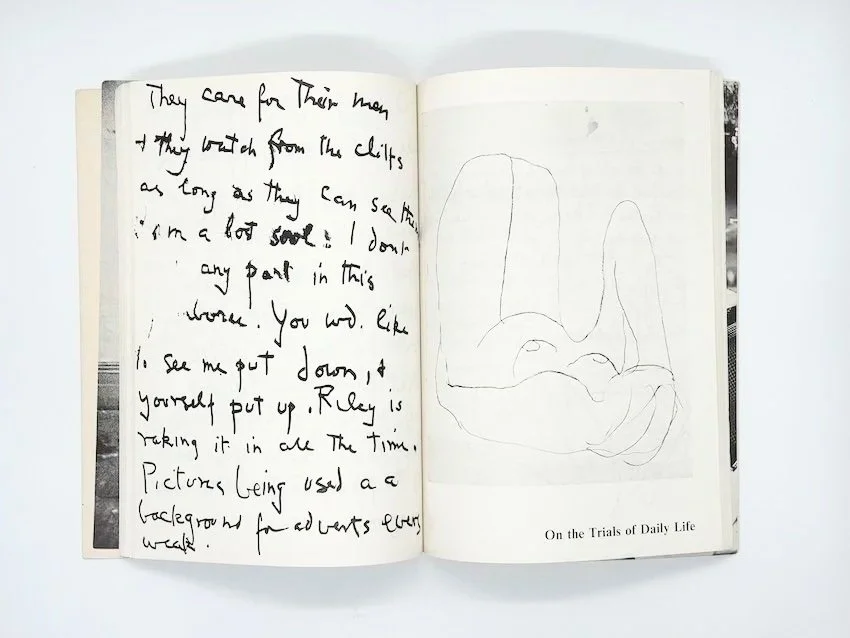 They care for their men
+ they watch from the cliffs
as long as they can see them
I'm a lost soul: I don't
any part in this
You wd. like
to see me put down, &
yourself put up. Riley is
raking it in all the time.
Pictures being used a a
background for adverts every
week.
On the Trials of Daily Life